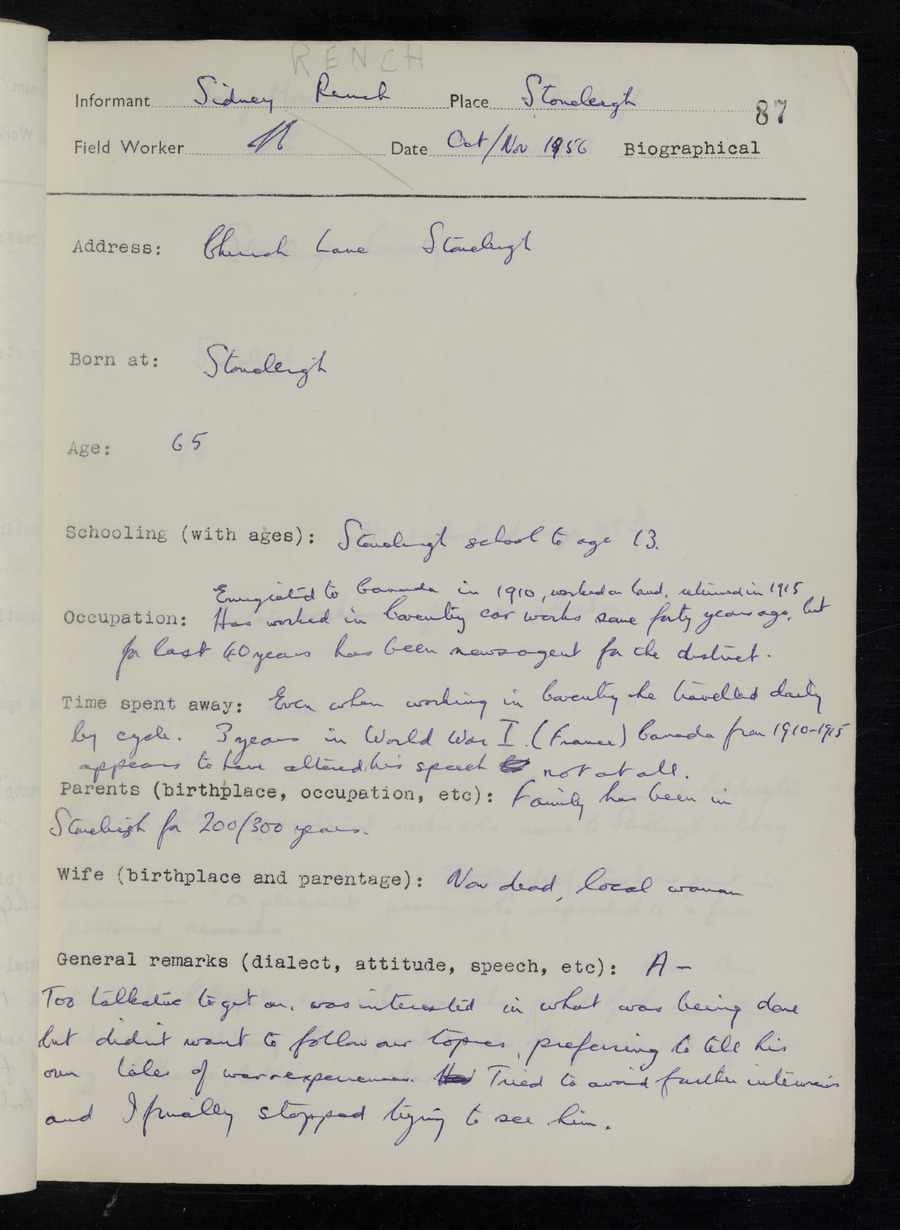 RENCH
Informant Sidney Rench Place Stoneleigh 87
Field Worker Date Oct/Nov 1956 Biographical
Address: Church Lane Stoneleigh
Born at: Stoneleigh
Age: 65
Schooling (with ages): Stoneleigh school to age 13.
Emigrated to Canada in 1910, worked on land, returned in 1915
Occupation: Has worked in Coventry car works some forty years ago, but
for last 40 years has been newsagent for the district.
Time spent away: Even when working in Coventry he travelled daily
by cycle. 3 years in World War I. (France) Canada from 1910-1915
appears to have altered his speech not at all.
Parents (birthplace, occupation, etc): Family has been in
Stoneleigh for 200/300 years.
Wife (birthplace and parentage): Now dead, local woman
General remarks (dialect, attitude, speech, etc): A-
Too talkative to get on, was interested in what was being done
but didn't want to follow our topics, preferring to tell his
own tales of war-experiences. Tried to avoid further interviews
and I finally stopped trying to see him.